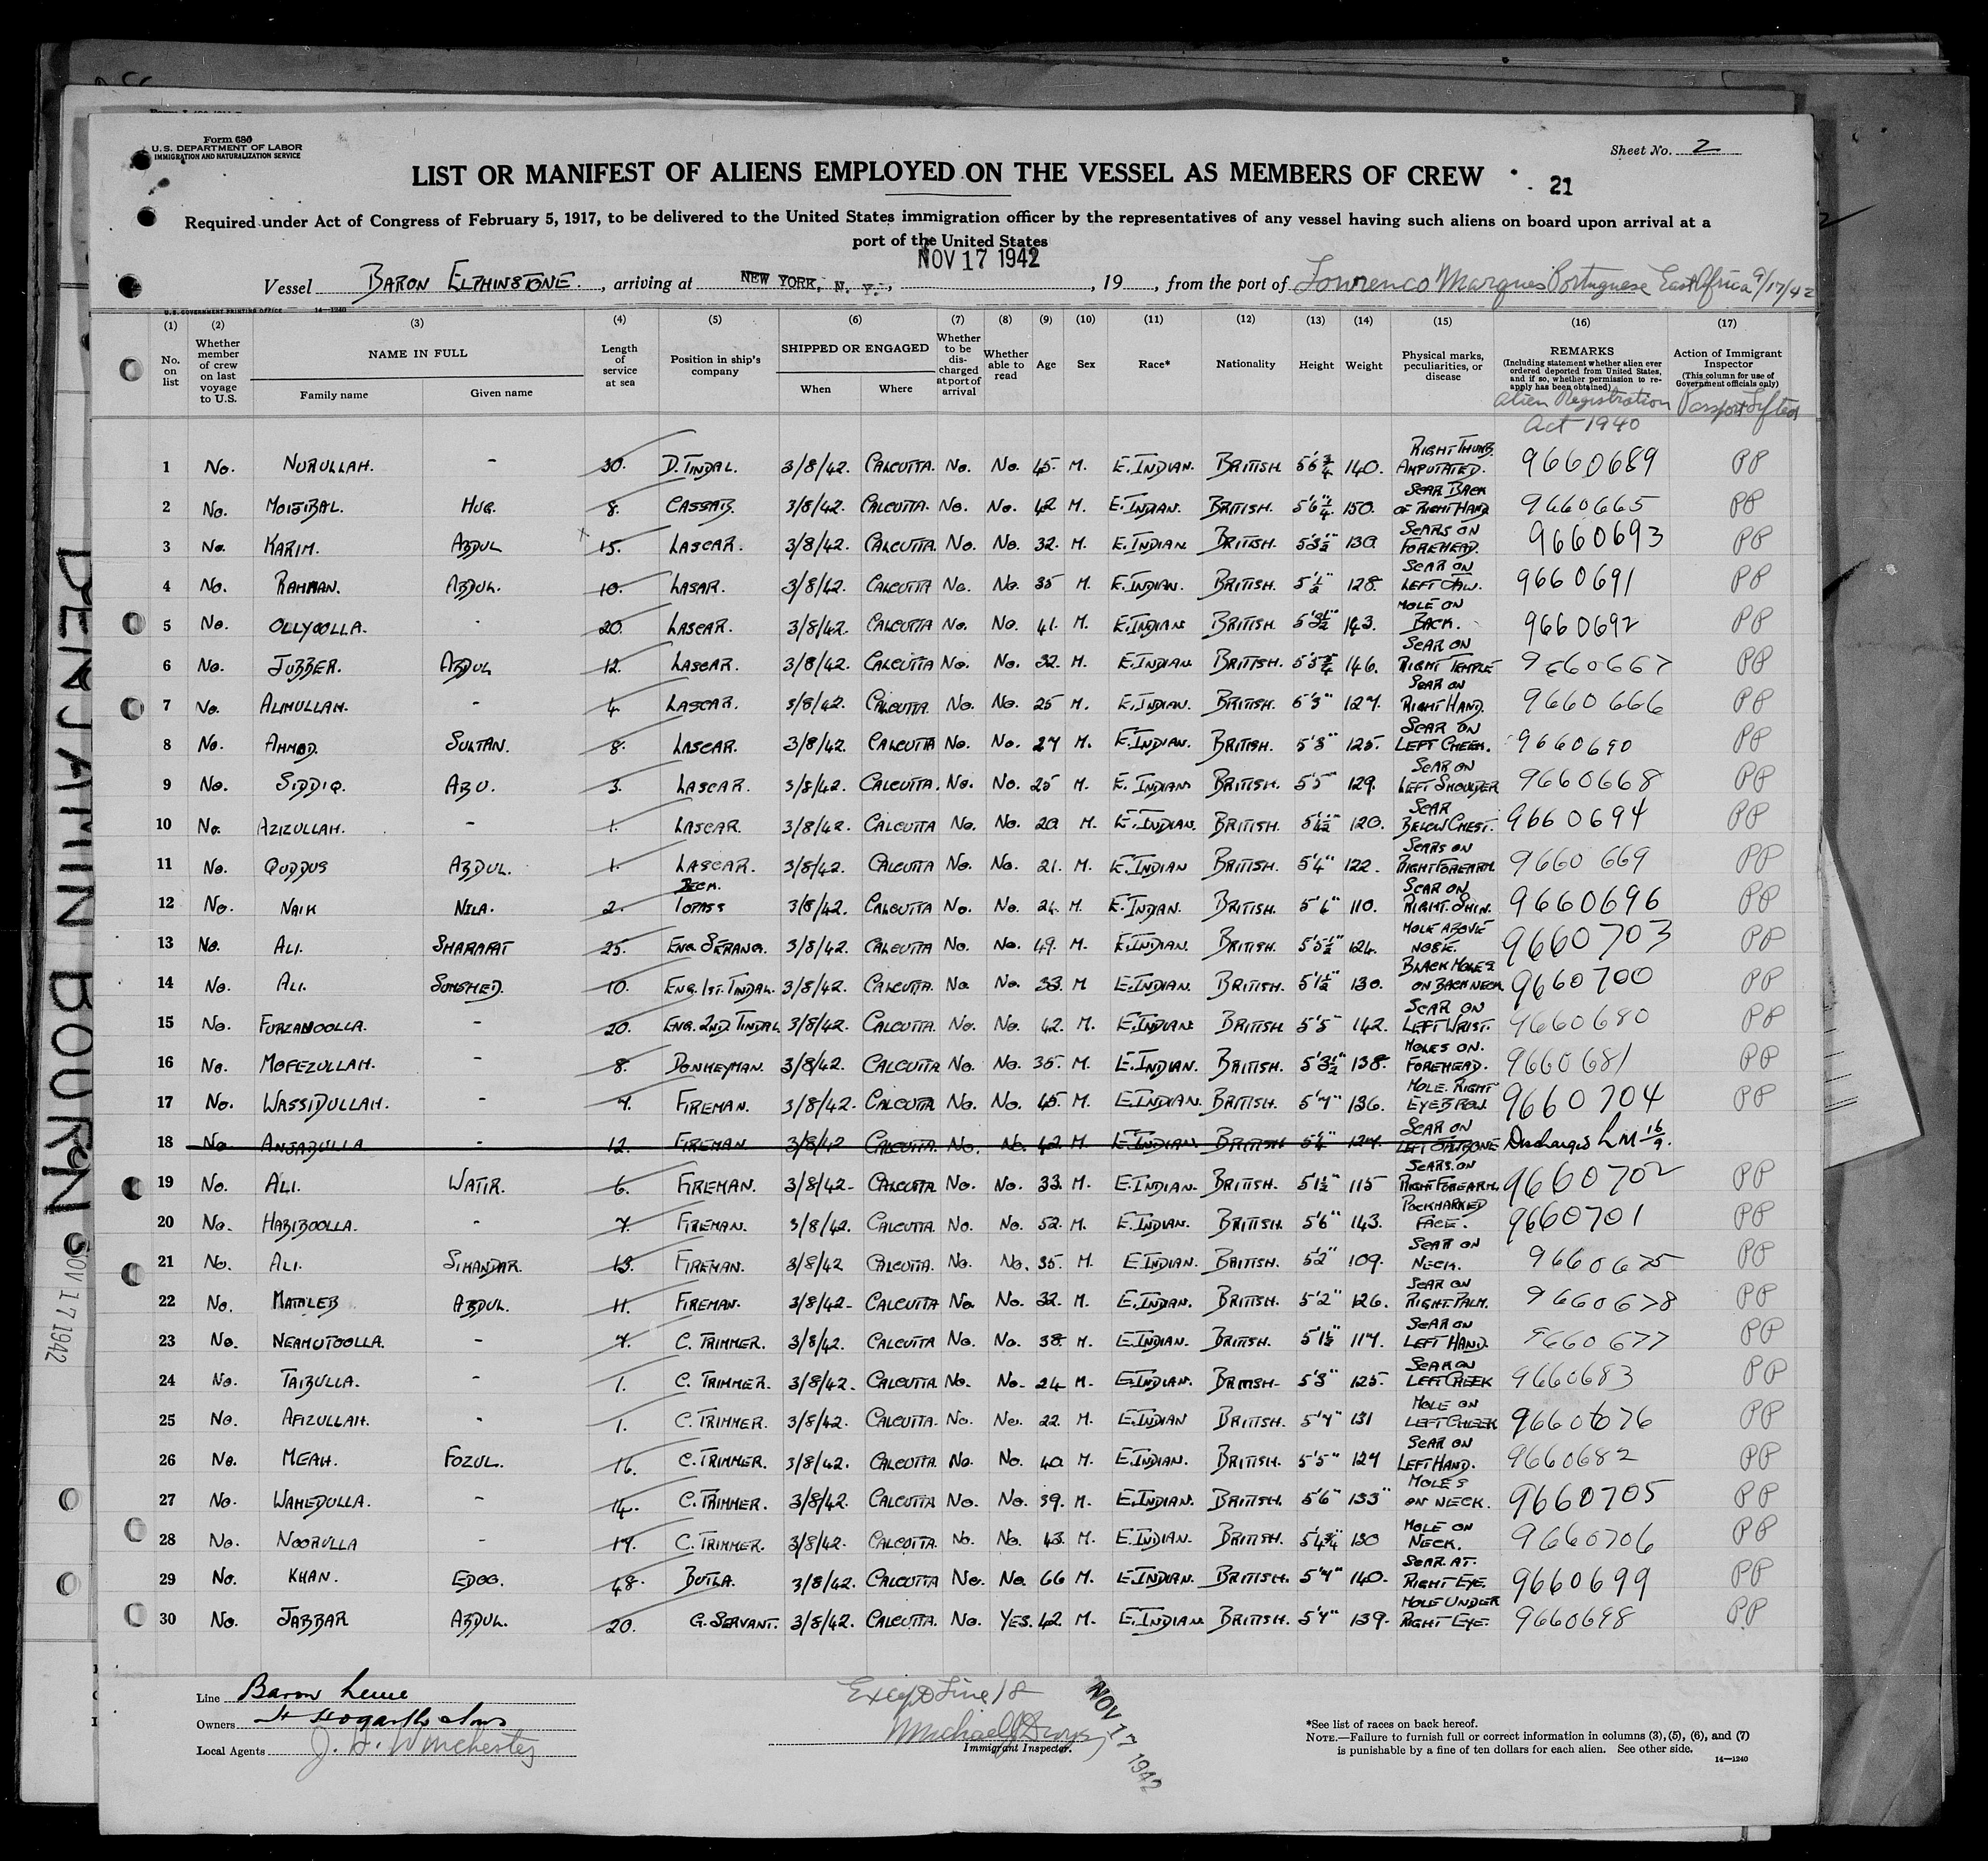 Form 680
U.S. DEPARTMENT OF LABOR
IMMIGRATION AND NATURALIZATION SERVICE
Sheet No. 2
LIST OR MANIFEST OF ALIENS EMPLOYED ON THE VESSEL AS MEMBERS OF CREW
21
Required under Act of Congress of February 5, 1917, to be delivered to the United States immigration officer by the representatives of any vessel having such aliens on board upon arrival at a
port of the United States
NOV 17 1942
Vessel BARON ELPHINSTONE., arriving at NEW YORK, N. Y., , 19 , from the port of Lourenco Marques Portuguese East Africa 9/17/42
U.S. GOVERNMENT PRINTING OFFICE 14-1240
(1) (2) (3) (4) (5) (6) (7) (8) (9) (10) (11) (12) (13) (14) (15) (16) (17)
No. on list
Whether member of crew on last voyage to U.S.
NAME IN FULL
Family name
Given name
Length of service at sea
Position in ship's company
SHIPPED OR ENGAGED
When
Where
Whether to be discharged at port of arrival
Whether able to read
Age
Sex
Race*
Nationality
Height
Weight
Physical marks, peculiarities, or disease
REMARKS
(Including statement whether alien ever ordered deported from United States, and if so, whether permission to reapply has been obtained)
Alien Registration Act 1940
Action of Immigrant Inspector
(This column for use of Government officials only)
Passport Lifted
1 No. NURULLAH. - 30. D. TINDAL. 3/8/42. CALCUTTA. No. No. 45. M. E. INDIAN. BRITISH 5'6 3/4 140. RIGHT THUMB AMPUTATED. 9660689 PP
2 No. MOIJIBAL. HUQ. 8. CASSAB. 3/8/42. CALCUTTA. No. No. 42 M. E. INDIAN. BRITISH. 5'6 1/4" 150. SCAR BACK OF RIGHT HAND 9660665 PP
3 No. KARIM. ABDUL 15. LASCAR. 3/8/42. CALCUTTA. No. No. 32. M. E. INDIAN BRITISH. 5'3 1/2" 130. SCARS ON FOREHEAD. 9660693 PP
4 No. RAHMAN. ABDUL. 10. LASAR. 3/8/42. CALCUTTA No. No. 35 M. E. INDIAN. BRITISH 5' 1/2" 128. SCAR ON LEFT JAW. 9660691 PP
5 No. OLLYOOLLA. - 20. LASCAR. 3/8/42. CALCUTTA. No. No. 41. M. E. INDIAN BRITISH 5'3 1/2" 143. MOLE ON BACK. 9660692 PP
6 No. JUBBER. ABDUL 12. LASCAR. 3/8/42. CALCUTTA No. No. 32. M. E. INDIAN BRITISH. 5'5 3/4 146. SCAR ON RIGHT TEMPLE 9660667 PP
7 No. ALIMULLAH. - 4. LASCAR. 3/8/42. CALCUTTA. No. No. 25 M. E. INDIAN. BRITISH. 5'3" 127. SCAR ON RIGHT HAND. 9660666 PP
8 No. AHMOD. SULTAN. 8. LASCAR. 3/8/42. CALCUTTA No. No. 27 M. E. INDIAN. BRITISH. 5'3" 125. SCAR ON LEFT CHEEK. 9660690 PP
9 No. SIDDIQ. ABU. 3. LASCAR. 3/8/42. CALCUTTA. No. No. 25 M. E. INDIAN BRITISH. 5'5" 129. SCAR ON LEFT SHOULDER 9660668 PP
10 No. AZIZULLAH. - 1. LASCAR. 3/8/42. CALCUTTA No. No. 20 M. E. INDIAN. BRITISH. 5'4 1/2" 120. SCAR BELOW CHEST. 9660694 PP
11 No. QUDDUS ABDUL. 1. LASCAR. 3/8/42. CALCUTTA No. No. 21. M. E. INDIAN BRITISH. 5'4" 122. SCARS ON RIGHT FOREARM. 9660669 PP
12 No. NAIK NILA. 2. DECK. TOPASS 3/8/42. CALCUTTA No. No. 24. M. E. INDIAN. BRITISH. 5'6" 110. SCAR ON RIGHT. SHIN. 9660696 PP
13 No. ALI. SHARAFAT 25. ENG. SERANG. 3/8/42. CALCUTTA No. No. 49. M. E. INDIAN. BRITISH. 5'5 1/2" 124. MOLE ABOVE NOSE. 9660703 PP
14 No. ALI. 10. ENG. 1ST. TINDAL. 3/8/42. CALCUTTA. No No. 33. M E. INDIAN. BRITISH. 5'1 1/2" 130. BLACK MOLES ON BACK NECK 9660700 PP
15 No. FURZANOOLLA. - 20. ENG. 2ND TINDAL 3/8/42. CALCUTTA. No. No. 42. M. E. INDIAN BRITISH 5'5" 142. SCAR ON LEFT WRIST. 9660680 PP
16 No. MOFEZULLAH. - 8. DONKEYMAN. 3/8/42. CALCUTTA No. No. 35. M. E. INDIAN. BRITISH. 5'3 1/2" 138. MOLES ON. FOREHEAD. 9660681 PP
17 No. WASSIDULLAH. - 7. FIREMAN. 3/8/42. CALCUTTA No. No. 45. M. E. INDIAN. BRITISH. 5'7" 136. MOLE. RIGHT EYEBROW. 9660704 PP
18 No ANSABULLA - 12. FIREMAN 3/8/42 CALCUTTA. No. No. 42 M. E. INDIAN BRITISH 5'4" 127. SCAR ON Discharged LM 16/9.
19 No. ALI. WATIR. 6. FIREMAN. 3/8/42- CALCUTTA No. No. 33. M. E. INDIAN. BRITISH. 5'1 1/2" 115 SCARS. ON RIGHT FOREARM. 9660702 PP
20 No. HABIBOOLLA. - 7. FIREMAN. 3/8/42. CALCUTTA No. No. 52. M. E. INDIAN. BRITISH. 5'6" 143. POCKMARKED FACE. 9660701 PP
21 No. ALI. SIKANDAR. 13. FIREMAN. 3/8/42 CALCUTTA. No. No. 35. M. E. INDIAN. BRITISH. 5'2" 109. SCAR ON NECK. 9660675 PP
22 No. MATALEB ABDUL. 11. FIREMAN. 3/8/42- CALCUTTA No. No. 32. M. E. INDIAN. BRITISH. 5'2" 126. SCAR ON RIGHT. PALM. 9660678 PP
23 No. NEAMUTOOLLA. - 7. C. TRIMMER. 3/8/42. CALCUTTA No. No. 38. M. E. INDIAN. BRITISH. 5'1 1/2" 117. SCAR ON LEFT HAND. 9660677 PP
24 No. TAIBULLA. - 1. C. TRIMMER. 3/8/42. CALCUTTA. No. No. 24 M. E. INDIAN. BRITISH- 5'3" 125. SCAR ON LEFT CHEEK 9660683 PP
25 No. AFIZULLAH. - 1. C. TRIMMER. 3/8/42. CALCUTTA. No. No. 22. M. E. INDIAN BRITISH. 5'7" 131 MOLE ON LEFT CHEEK 9660676 PP
26 No. MEAH. FOZUL. 16. C. TRIMMER. 3/8/42. CALCUTTA. No. No. 40 M. E. INDIAN. BRITISH. 5'5" 127 SCAR ON LEFT HAND. 9660682 PP
27 No. WAHEDULLA. - 14. C. TRIMMER. 3/8/42. CALCUTTA No. No. 39. M. E. INDIAN. BRITISH. 5'6" 133 MOLES ON NECK. 9660705 PP
28 No. NOORULLA - 17. C. TRIMMER. 3/8/42. CALCUTTA. No. No. 43. M. E. INDIAN. BRITISH. 5'4 3/4" 130 MOLE ON NECK. 9660706 PP
29 No. KHAN. EDOO. 48. BUTLA. 3/8/42. CALCUTTA No. No. 66 M. E. INDIAN. BRITISH. 5'7" 140. SCAR. AT. RIGHT EYE. 9660699 PP
30 No. JABBAR ABDUL. 20. G. SERVANT. 3/8/42. CALCUTTA. No. YES. 42 M. E. INDIAN BRITISH. 5'7" 139. MOLE UNDER RIGHT EYE. 9660698 PP
Line Baron Line
Owners H Hogarth & Sons
Local Agents J. H. Winchester
Except Line 18
Immigrant Inspector.
NOV 17 1942
*See list of races on back hereof.
NOTE.—Failure to furnish full or correct information in columns (3), (5), (6), and (7)
is punishable by a fine of ten dollars for each alien. See other side.
14-1240
BENJAMIN BOURN
NOV 17 1942